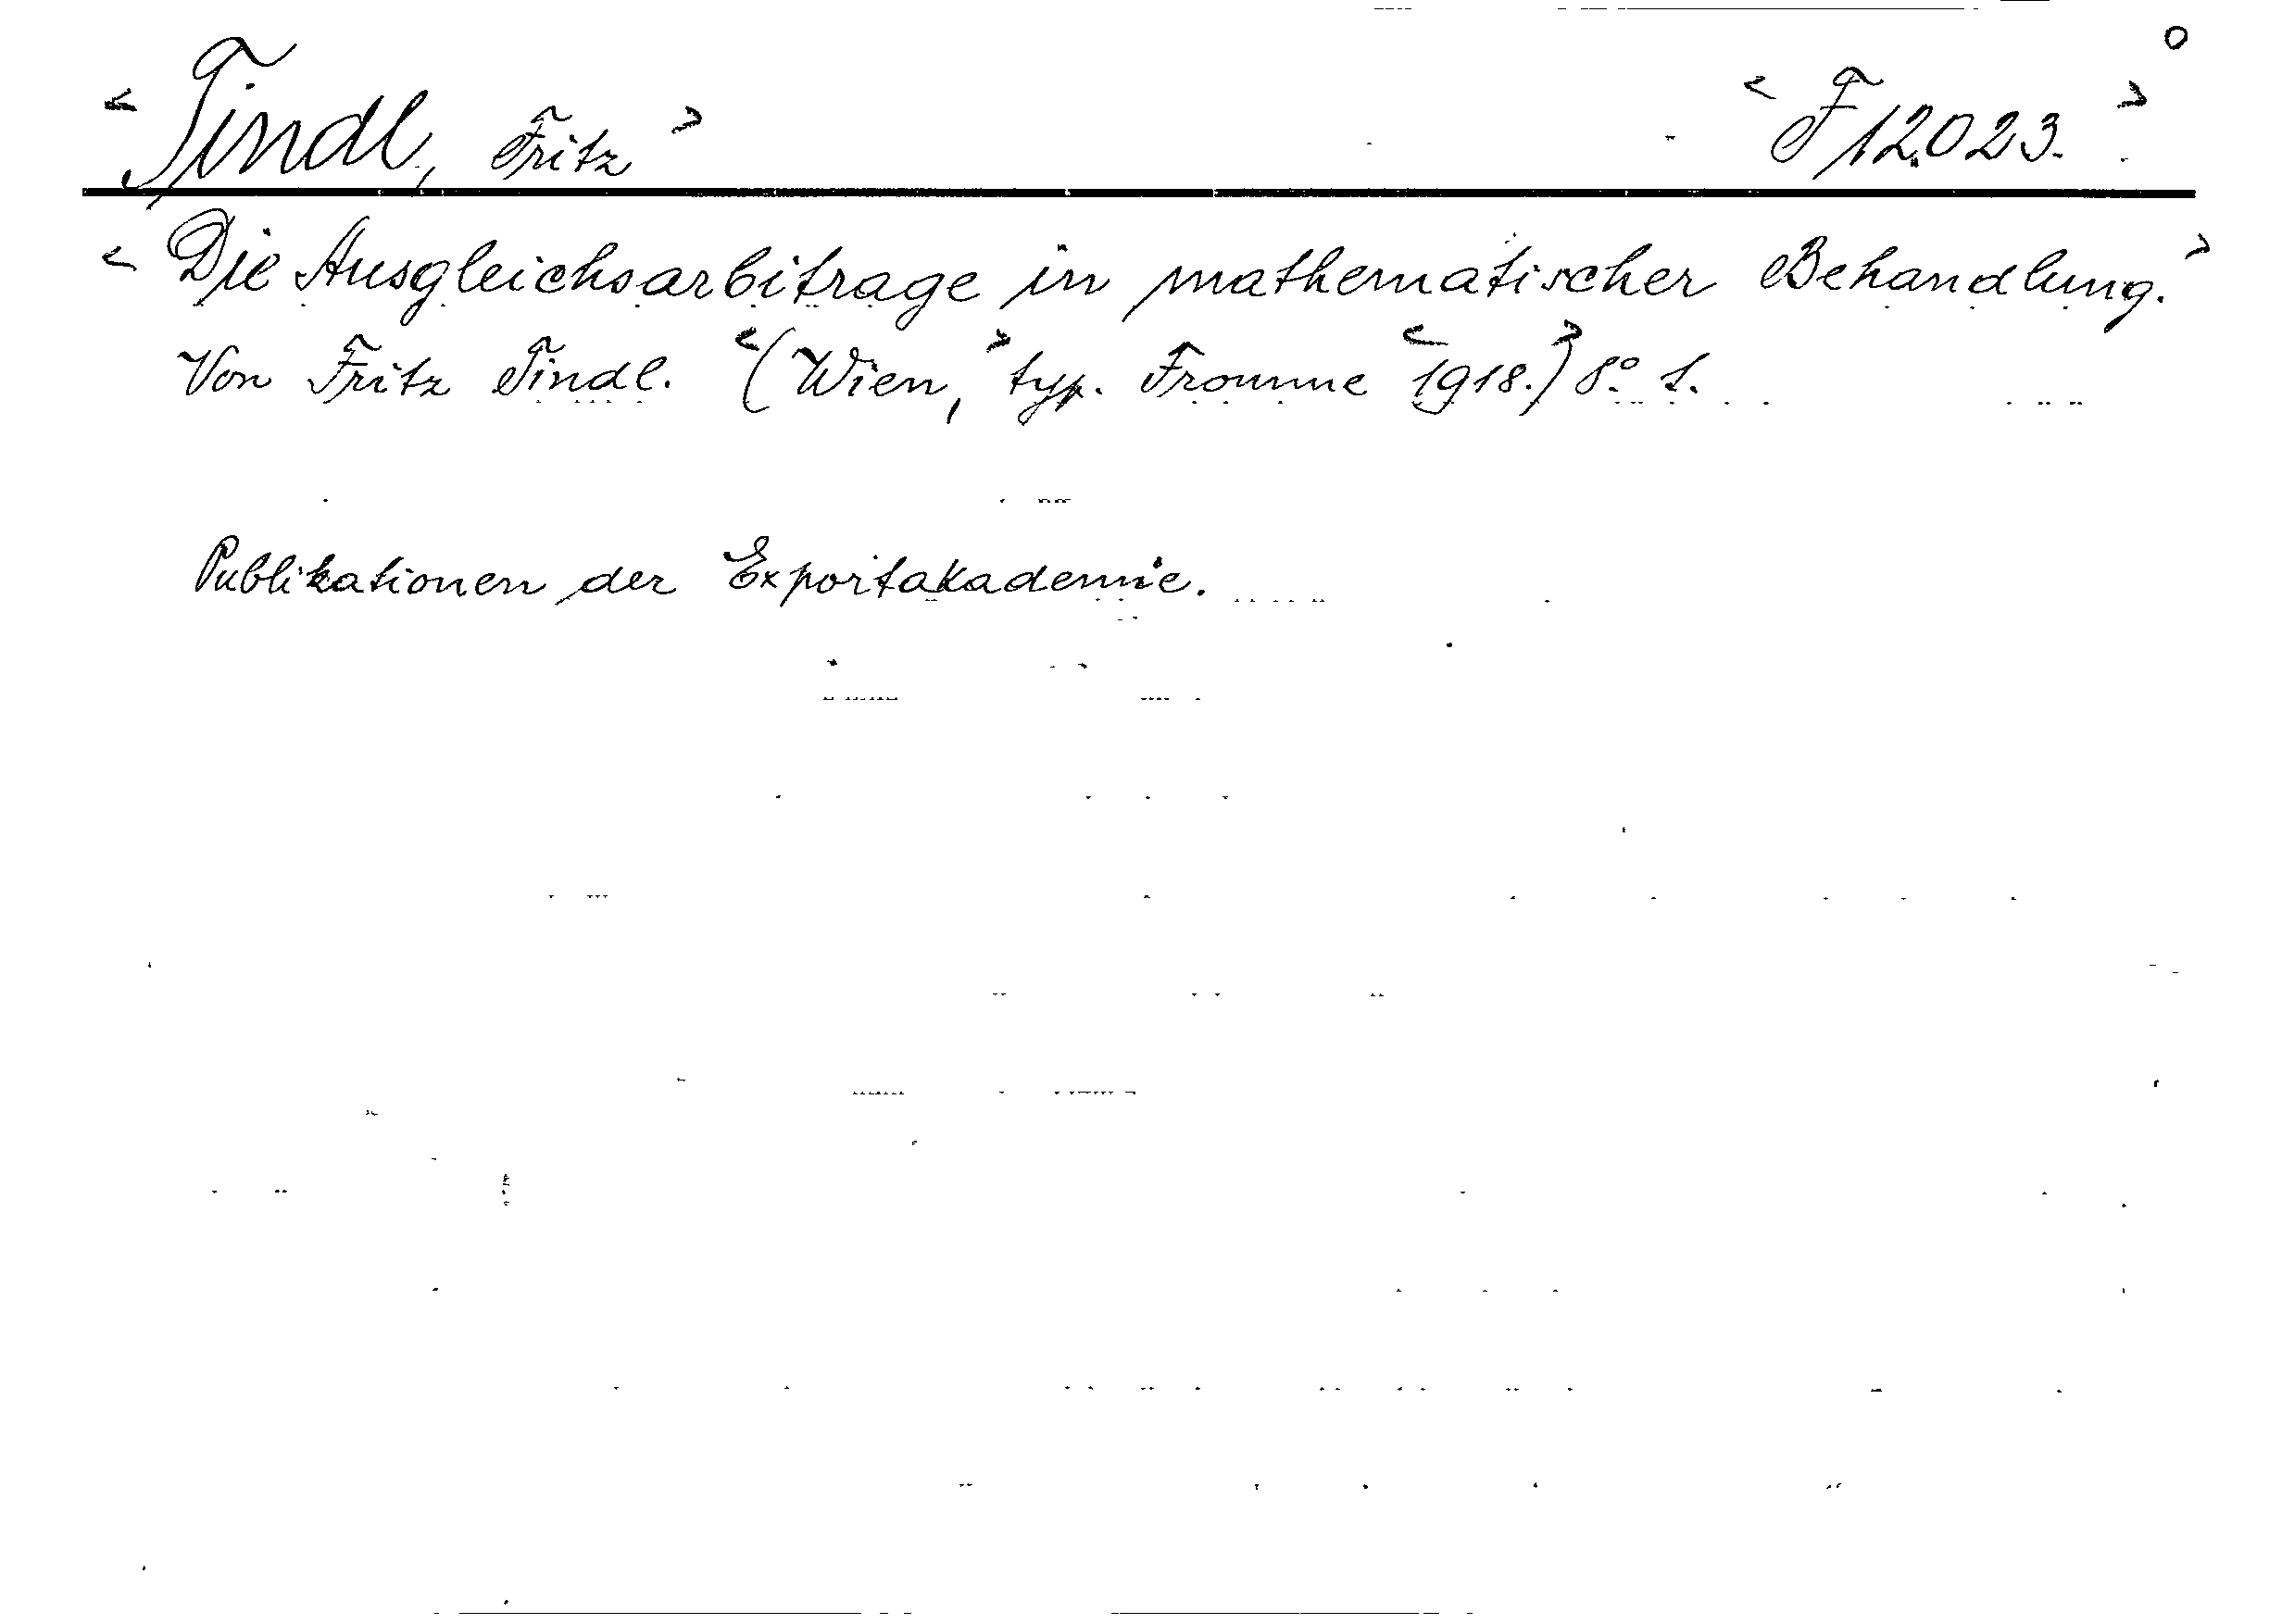 < Tindl, Fritz > < F 12.023. >
< Die Ausgleichsarbitrage in mathematischer Behandlung. >
Von Fritz Tindl. < (Wien, > typ. Fromme < 1918.) > 8° 1.
Publikationen der Exportakademie.